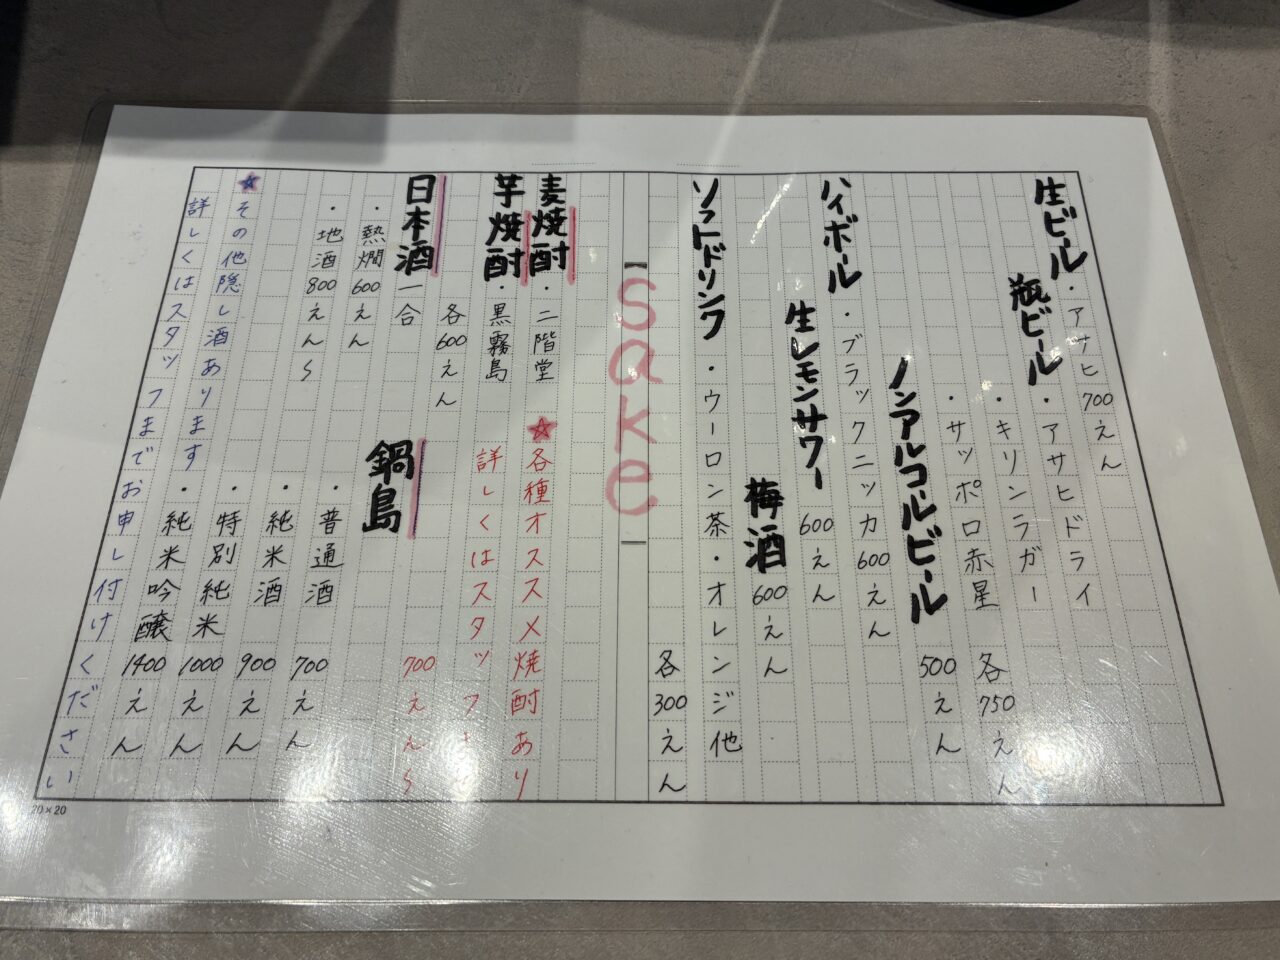 生ビール・アサヒ700えん
瓶ビール・アサヒドライ
・キリンラガー
・サッポロ赤星
各750えん
ノンアルコールビール
500えん
ハイボール・ブラックニッカ600えん
生レモンサワー600えん
梅酒600えん
ソフトドリンク・ウーロン茶・オレンジ他
各300えん
sake
麦焼酎・二階堂
芋焼酎・黒霧島
各600えん
★各種オススメ焼酎あり
詳しくはスタッフ
700えん〜
日本酒一合
・熱燗600えん
・地酒800えん〜
鍋島
・普通酒700えん
・純米酒900えん
・特別純米1000えん
・純米吟醸1400えん
★その他隠し酒あります
詳しくはスタッフまでお申し付けください
20×20